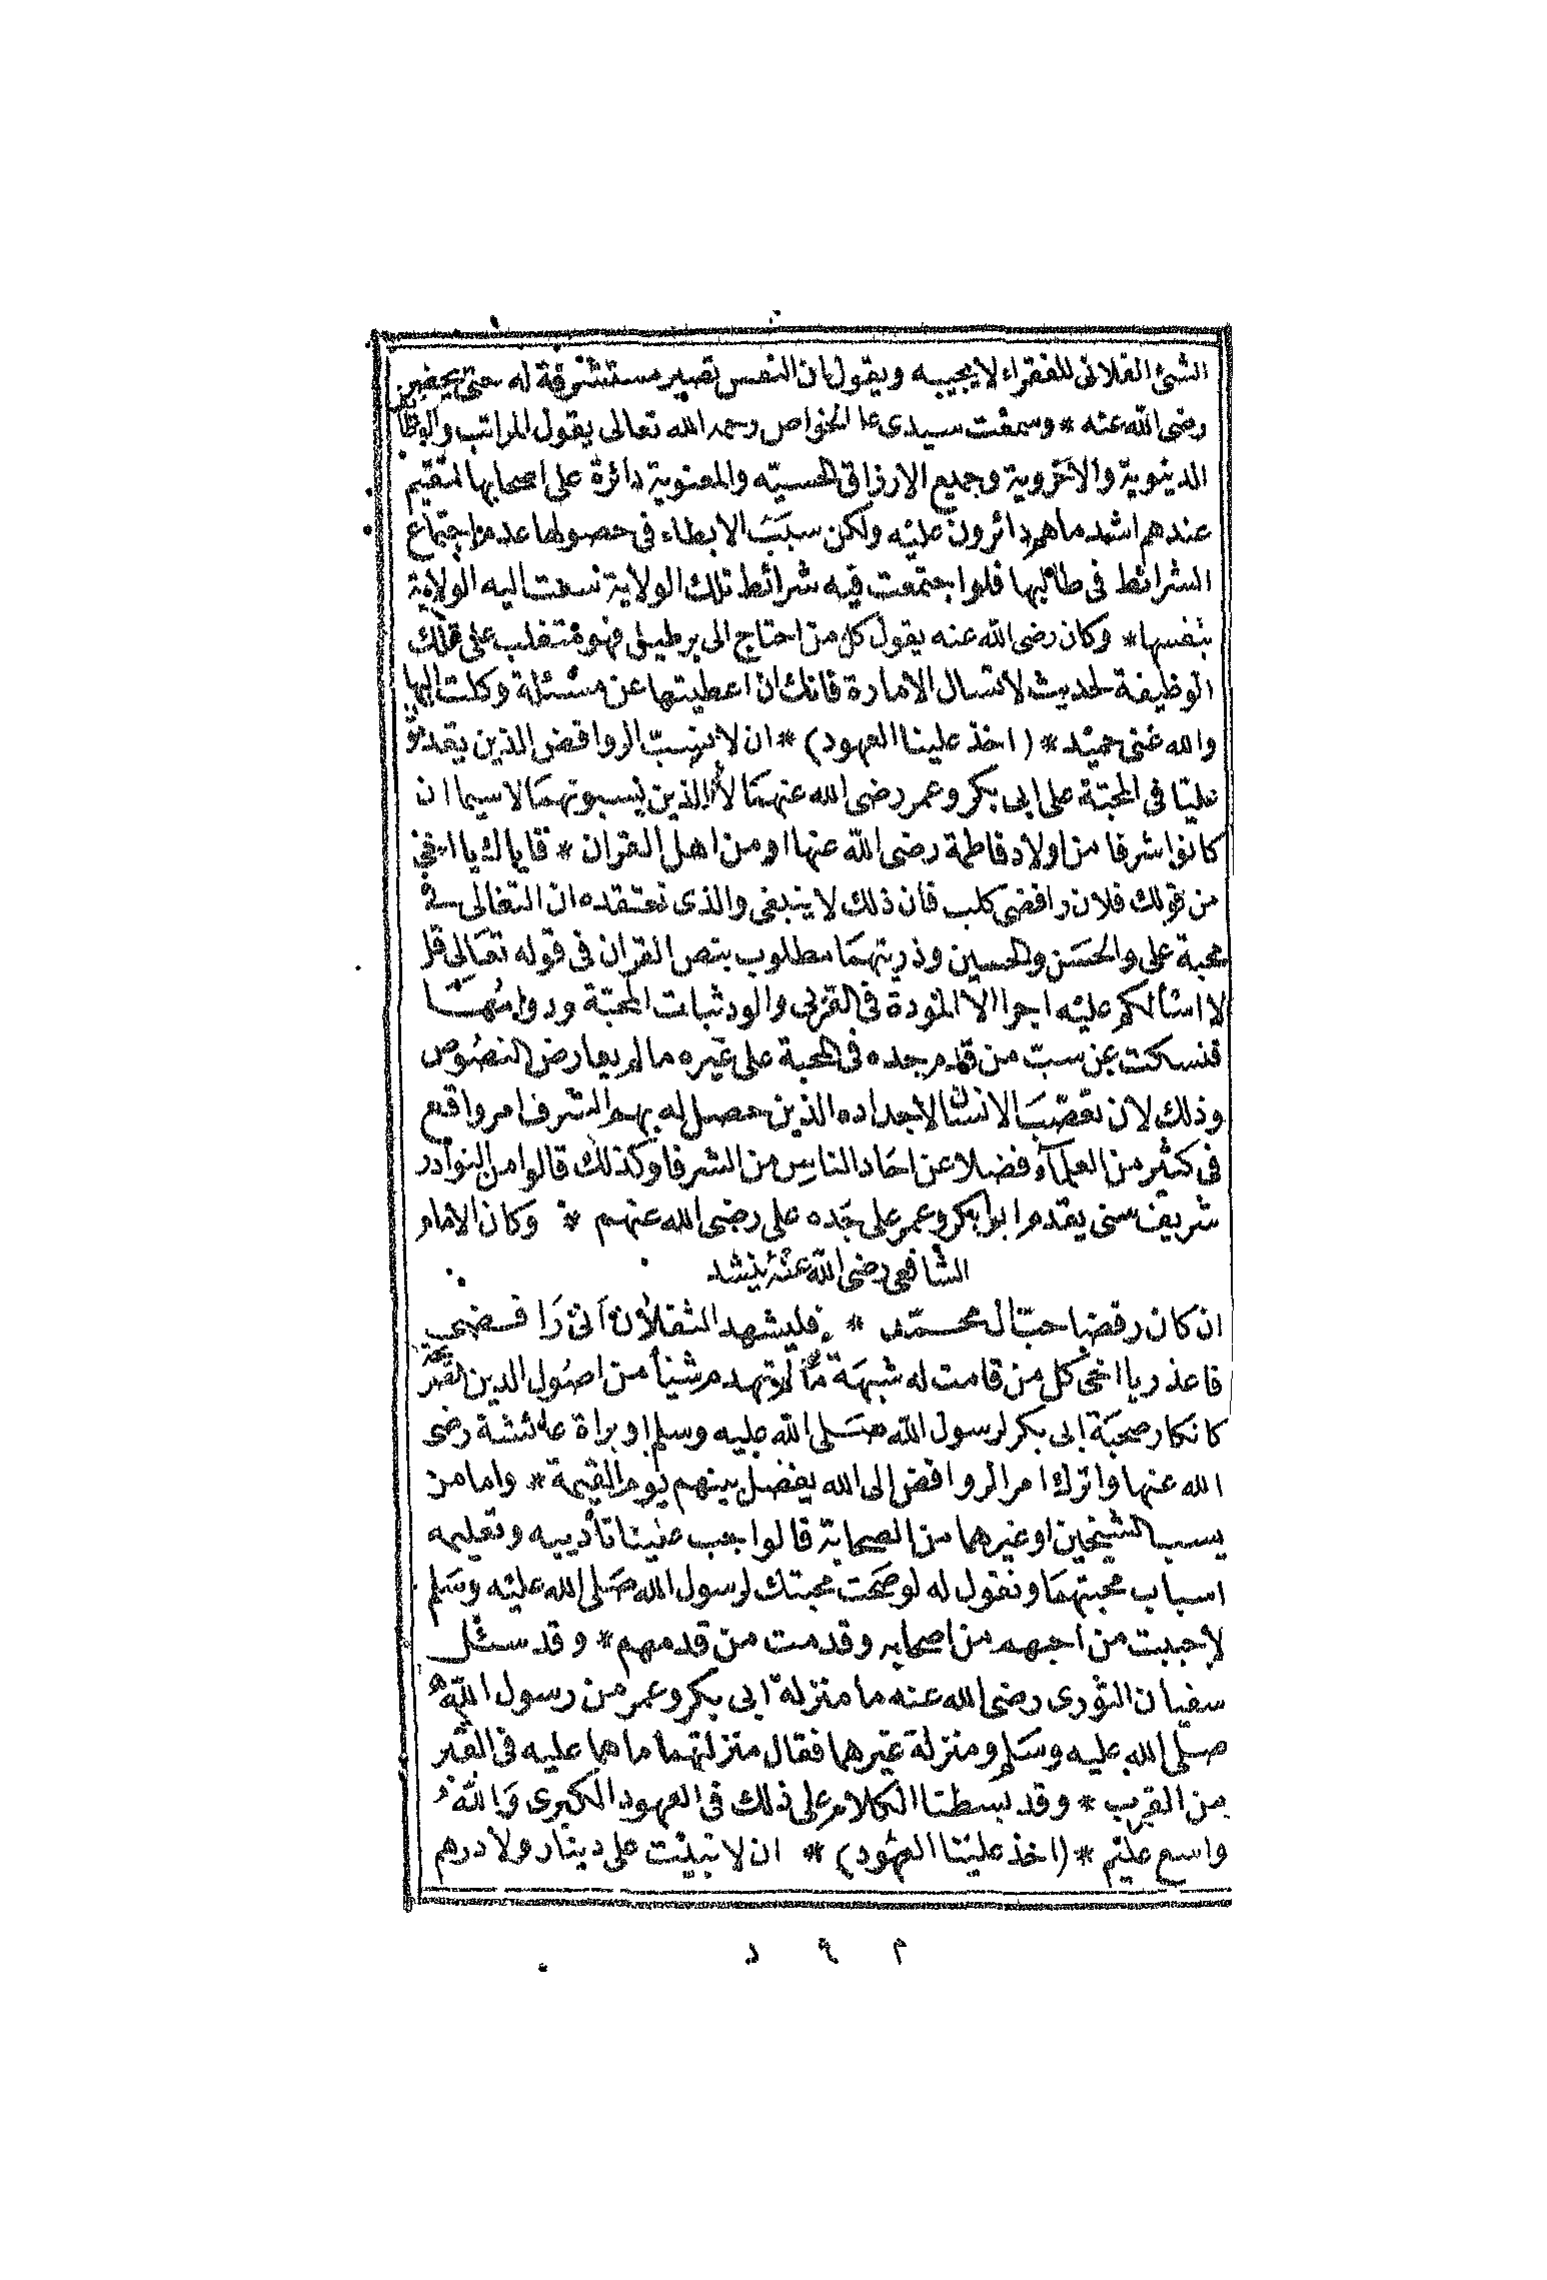 الشئ الفلانى للفقراء لا يجيبه ويقول ان النفس تصير مستشرفة له حتى يحضر
رضى الله عنه * وسمعت سيدى عليا الخواص رحمه الله تعالى يقول المراتب والوظا
الدينوية والاخروية وجميع الارزاق الحسيته والمعنوية دائرة على اصحابها لتقيم
عندهم اشد ما هم دائرون عليه ولكن سبب الابطاء فى حصولها عدم اجتماع
الشرائط فى طالبها فلو اجتمعت فيه شرائط تلك الولاية سعت اليه الولاية
بنفسها * وكان رضى الله عنه يقول كل من احتاج الى برطيل فهو متغلب على تلك
الوظيفة لحديث لا تسال الامارة فانك ان اعطيتها عن مسئلة وكلت اليها
والله غنى حميد * (اخذ علينا العهود) * ان لا نسب الروافض الذين يقدمو
عليّا فى المحبّة على ابى بكر وعمر رضى الله عنهما لا الذين يسبونهما لا سيما ان
كانوا شرفا من اولاد فاطمة رضى الله عنها او من اهل القران * فاياك يا اخى
من قولك فلان رافضى كلب فان ذلك لا ينبغى والذى نعتقده ان التغالى فى
محبة على والحسن والحسين وذريتهما مطلوب بنص القران فى قوله تعالى قل
لا اسألكم عليه اجرا الا المودة فى القربى والود ثبات المحبّة ودوامها
فنسكت عن سبّ من قدم جده فى المحبة على غيره ما لم يعارض النصوص
وذلك لان تعصّب الانسان لاجداده الذين حصل له بهم الشرف امر واقع
فى كثير من العلمآء فضلا عن احاد الناس من الشرفا وكذلك قالوا من النوادر
شريف سنى يقدم ابا بكر وعمر على جده على رضى الله عنهم * وكان الامام
الشافعى رضى الله عنه ينشد
ان كان رفضا حبّ ال محمّد * فليشهد الثقلان انى رافضى
فاعذر يا اخى كل من قامت له شبهة ما لم تهدم شيئا من اصول الدين الصريحة
كانكار صحبة ابى بكر لرسول الله صلى الله عليه وسلم او براة عائشة رضى
الله عنها واترك امر الروافض الى الله يفصل بينهم يوم القيمة * واما من
يسب الشيخين او غيرهما من الصحابة قالواجب علينا تأديبه وتعليمه
اسباب محبتهما ونقول له لو صحت محبتك لرسول الله صلى الله عليه وسلم
لاحببت من احبهم من اصحابه وقدمت من قدمهم * وقد سئل
سفيان الثورى رضى الله عنه ما منزلة ابى بكر وعمر من رسول الله
صلى الله عليه وسلم ومنزلة غيرهما فقال منزلتهما ما هما عليه فى القبر
من القرب * وقد بسطنا الكلام على ذلك فى العهود الكبرى والله
واسع عليم * (اخذ علينا العهود) * ان لا نبيت على دينار ولا درهم